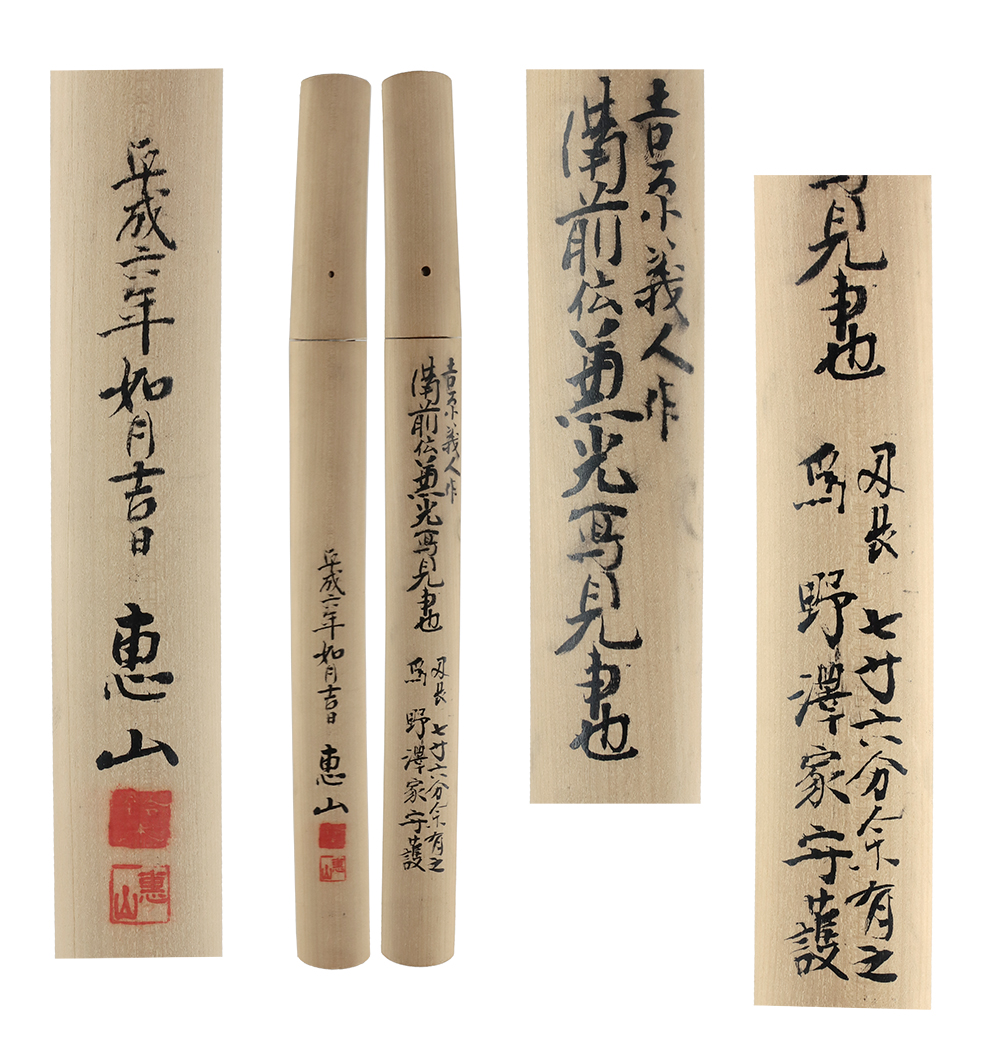 平成六年如月吉日 恵山
惠山
平成六年如月吉日 恵山
惠山
吉原義人作
備前伝兼光冩見事也
刃長 七寸六分余有之
為 野澤家守護
吉原義人作
備前伝兼光冩見事也
見事也
刃長 七寸六分余有之
為 野澤家守護